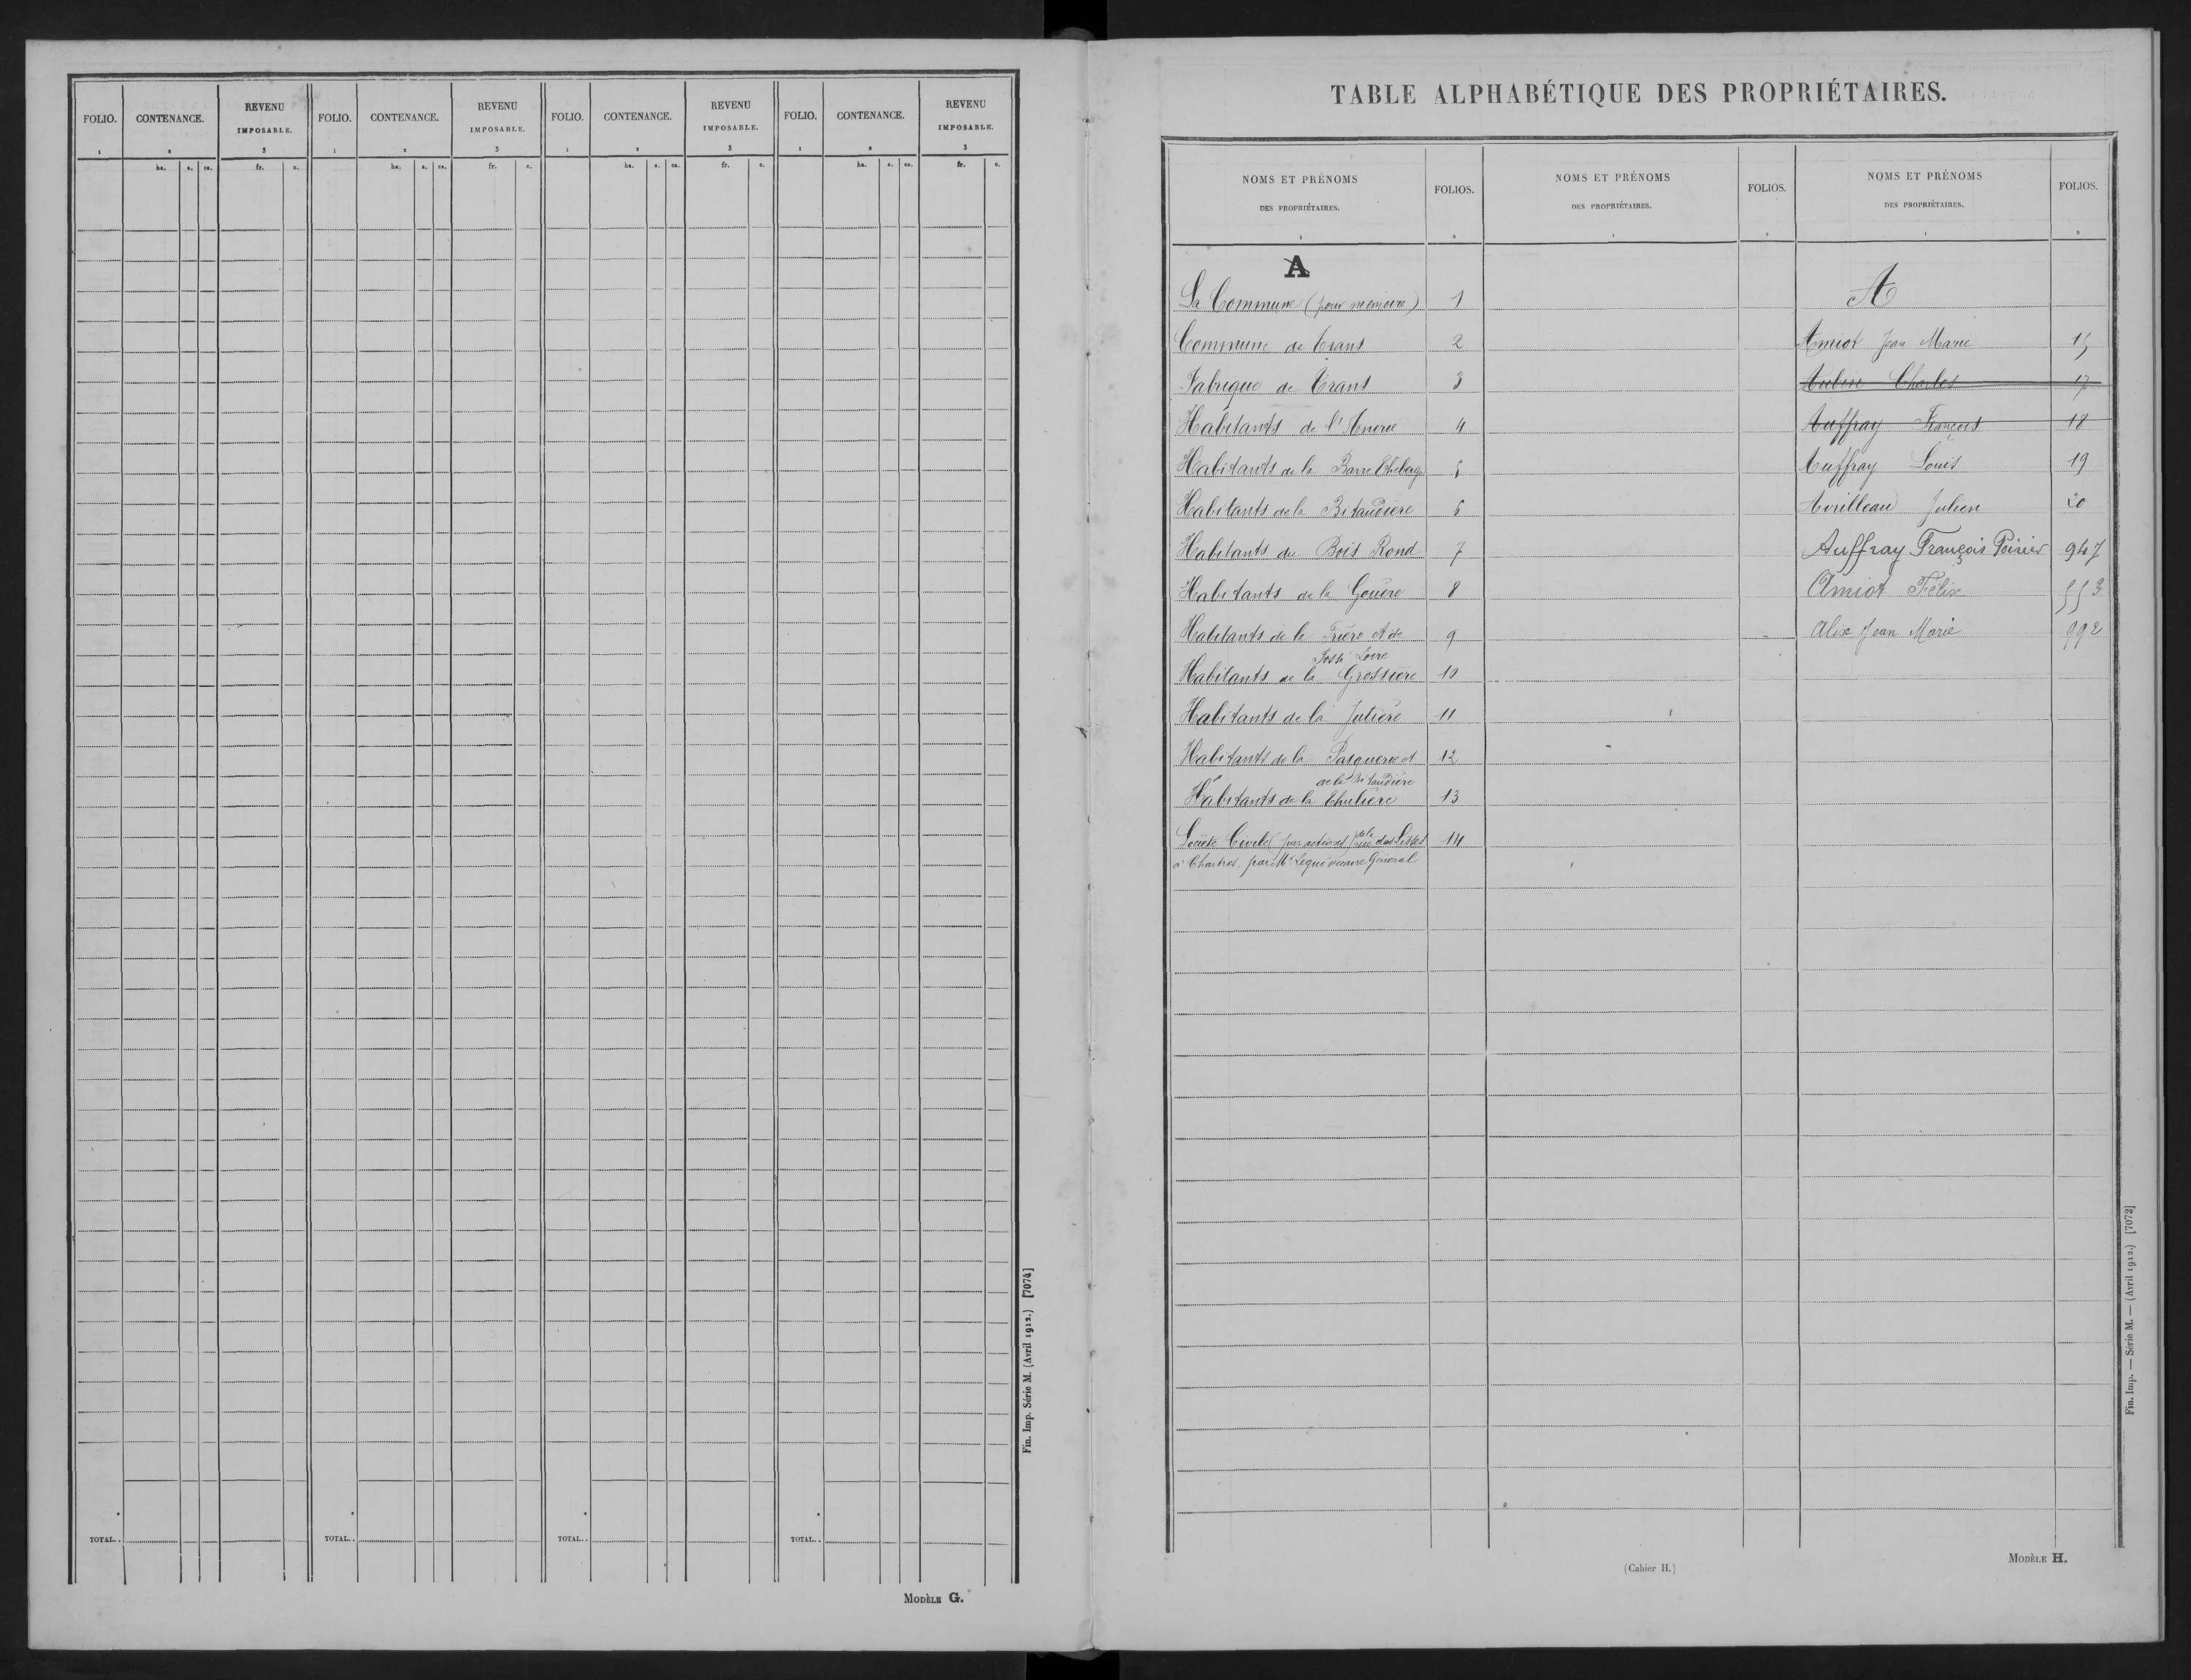 FOLIO. CONTENANCE. REVENU IMPOSABLE. FOLIO. CONTENANCE. REVENU IMPOSABLE. FOLIO. CONTENANCE. REVENU IMPOSABLE. FOLIO. CONTENANCE. REVENU IMPOSABLE.
1 2 3 1 2 3 1 2 3 1 2 3
ha. a. ca. fr. c. ha. a. ca. fr. c. ha. a. ca. fr. c. ha. a. ca. fr. c.
TOTAL.. TOTAL.. TOTAL.. TOTAL..
Fin. Imp. Série M. (Avril 1912.) [7074]
MODÈLE G.
TABLE ALPHABÉTIQUE DES PROPRIÉTAIRES.
NOMS ET PRÉNOMS DES PROPRIÉTAIRES. FOLIOS. NOMS ET PRÉNOMS DES PROPRIÉTAIRES. FOLIOS. NOMS ET PRÉNOMS DES PROPRIÉTAIRES. FOLIOS.
1 2 1 2 1 2
A
La Commune (pour memoire) 1
Commune de Trans 2
Fabrique de Trans 3
Habitants de l' 4
Habitants de la Barre
Habitants de la Bitaudière 6
Habitants du Bois Rond 7
Habitants de la Gouère 8
Habitants de la et de 9
Loire
Habitants de la Grossière 10
Habitants de la Jutière 11
Habitants de la Pasquerie et 12
de la Bitaudière
Habitants de la Thulière 13
Société Civile par actions de la rue des Lisses 14
à Chartres par Mr Legué vicaire Général
A
Amiot Jean Marie 15
Aubin Charles 17
Auffray François 18
Auffray Louis 19
Avrilleau Julien 20
Auffray François Poirier 947
Amiot Félix 553
Alix Jean Marie 992
Fin. Imp. — Série M. — (Avril 1912.) [7072]
(Cahier H.)
MODÈLE H.